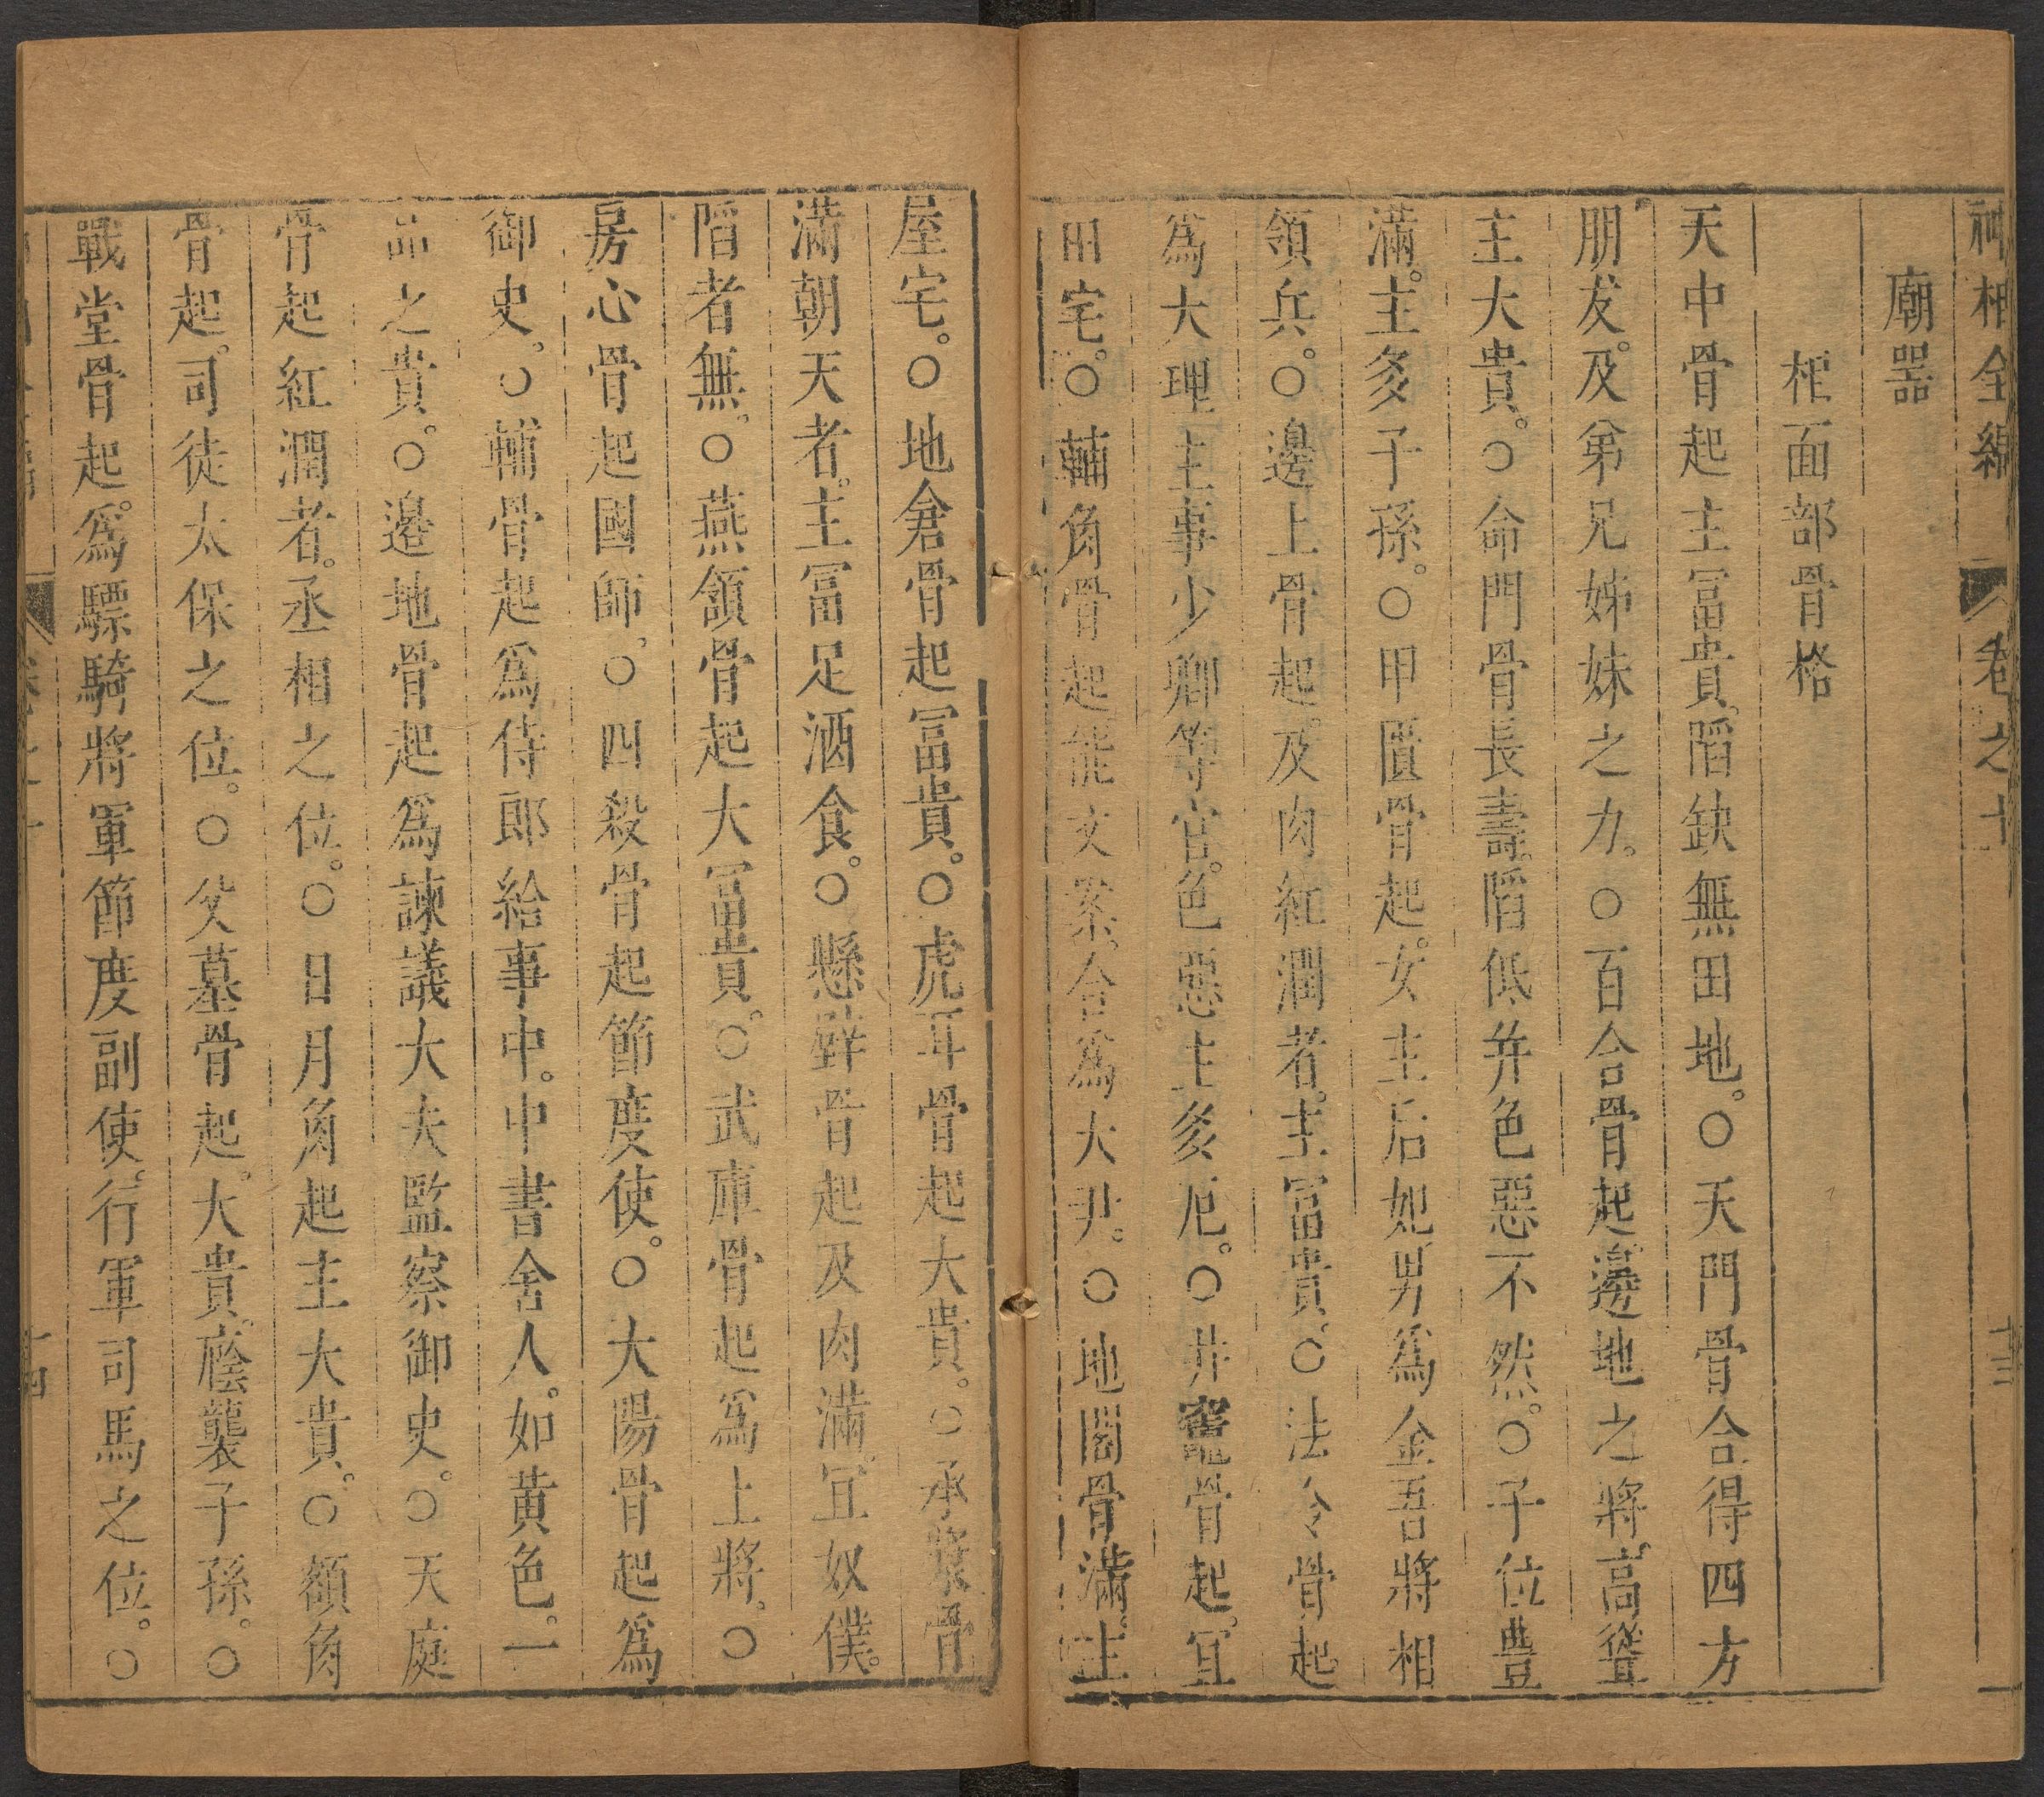 神相全編 卷之十 十三
廟器
相面部骨格
天中骨起主冨貴。陷缺無田地。○天門骨合得四方
朋友。及弟兄姊妹之力。○百合骨起。邊地之將。高聳
主大貴。○命門骨長壽。陷低并色惡不然。○子位豊
滿。主多子孫。○甲匱骨起。女主后妃。男爲金吾將相
領兵。○邊上骨起。及肉紅潤者。主冨貴。○法令骨起
爲大理主事少卿等官。色惡主多厄。○井竈骨起。冝
田宅。○輔角骨起能文案。合爲大尹。○地閣骨滿。主
屋宅。○地倉骨起冨貴。○虎耳骨起大貴。○承漿骨
滿朝天者。主冨足酒食。○懸壁骨起及肉滿。冝奴僕。
陷者無。○燕頷骨起大冨貴。○武庫骨起爲上將。○
房心骨起國師。○四殺骨起節度使。○大陽骨起爲
御史。○輔骨起爲侍郎給事中。中書舍人。如黄色。一
品之貴。○邊地骨起爲諫議大夫監察御史。○天庭
骨起紅潤者。丞相之位。○日月角起主大貴。○額角
骨起。司徒太保之位。○父墓骨起。大貴。廕襲子孫。○
戰堂骨起。爲驃騎將軍節度副使。行軍司馬之位。○
卷之十 十四